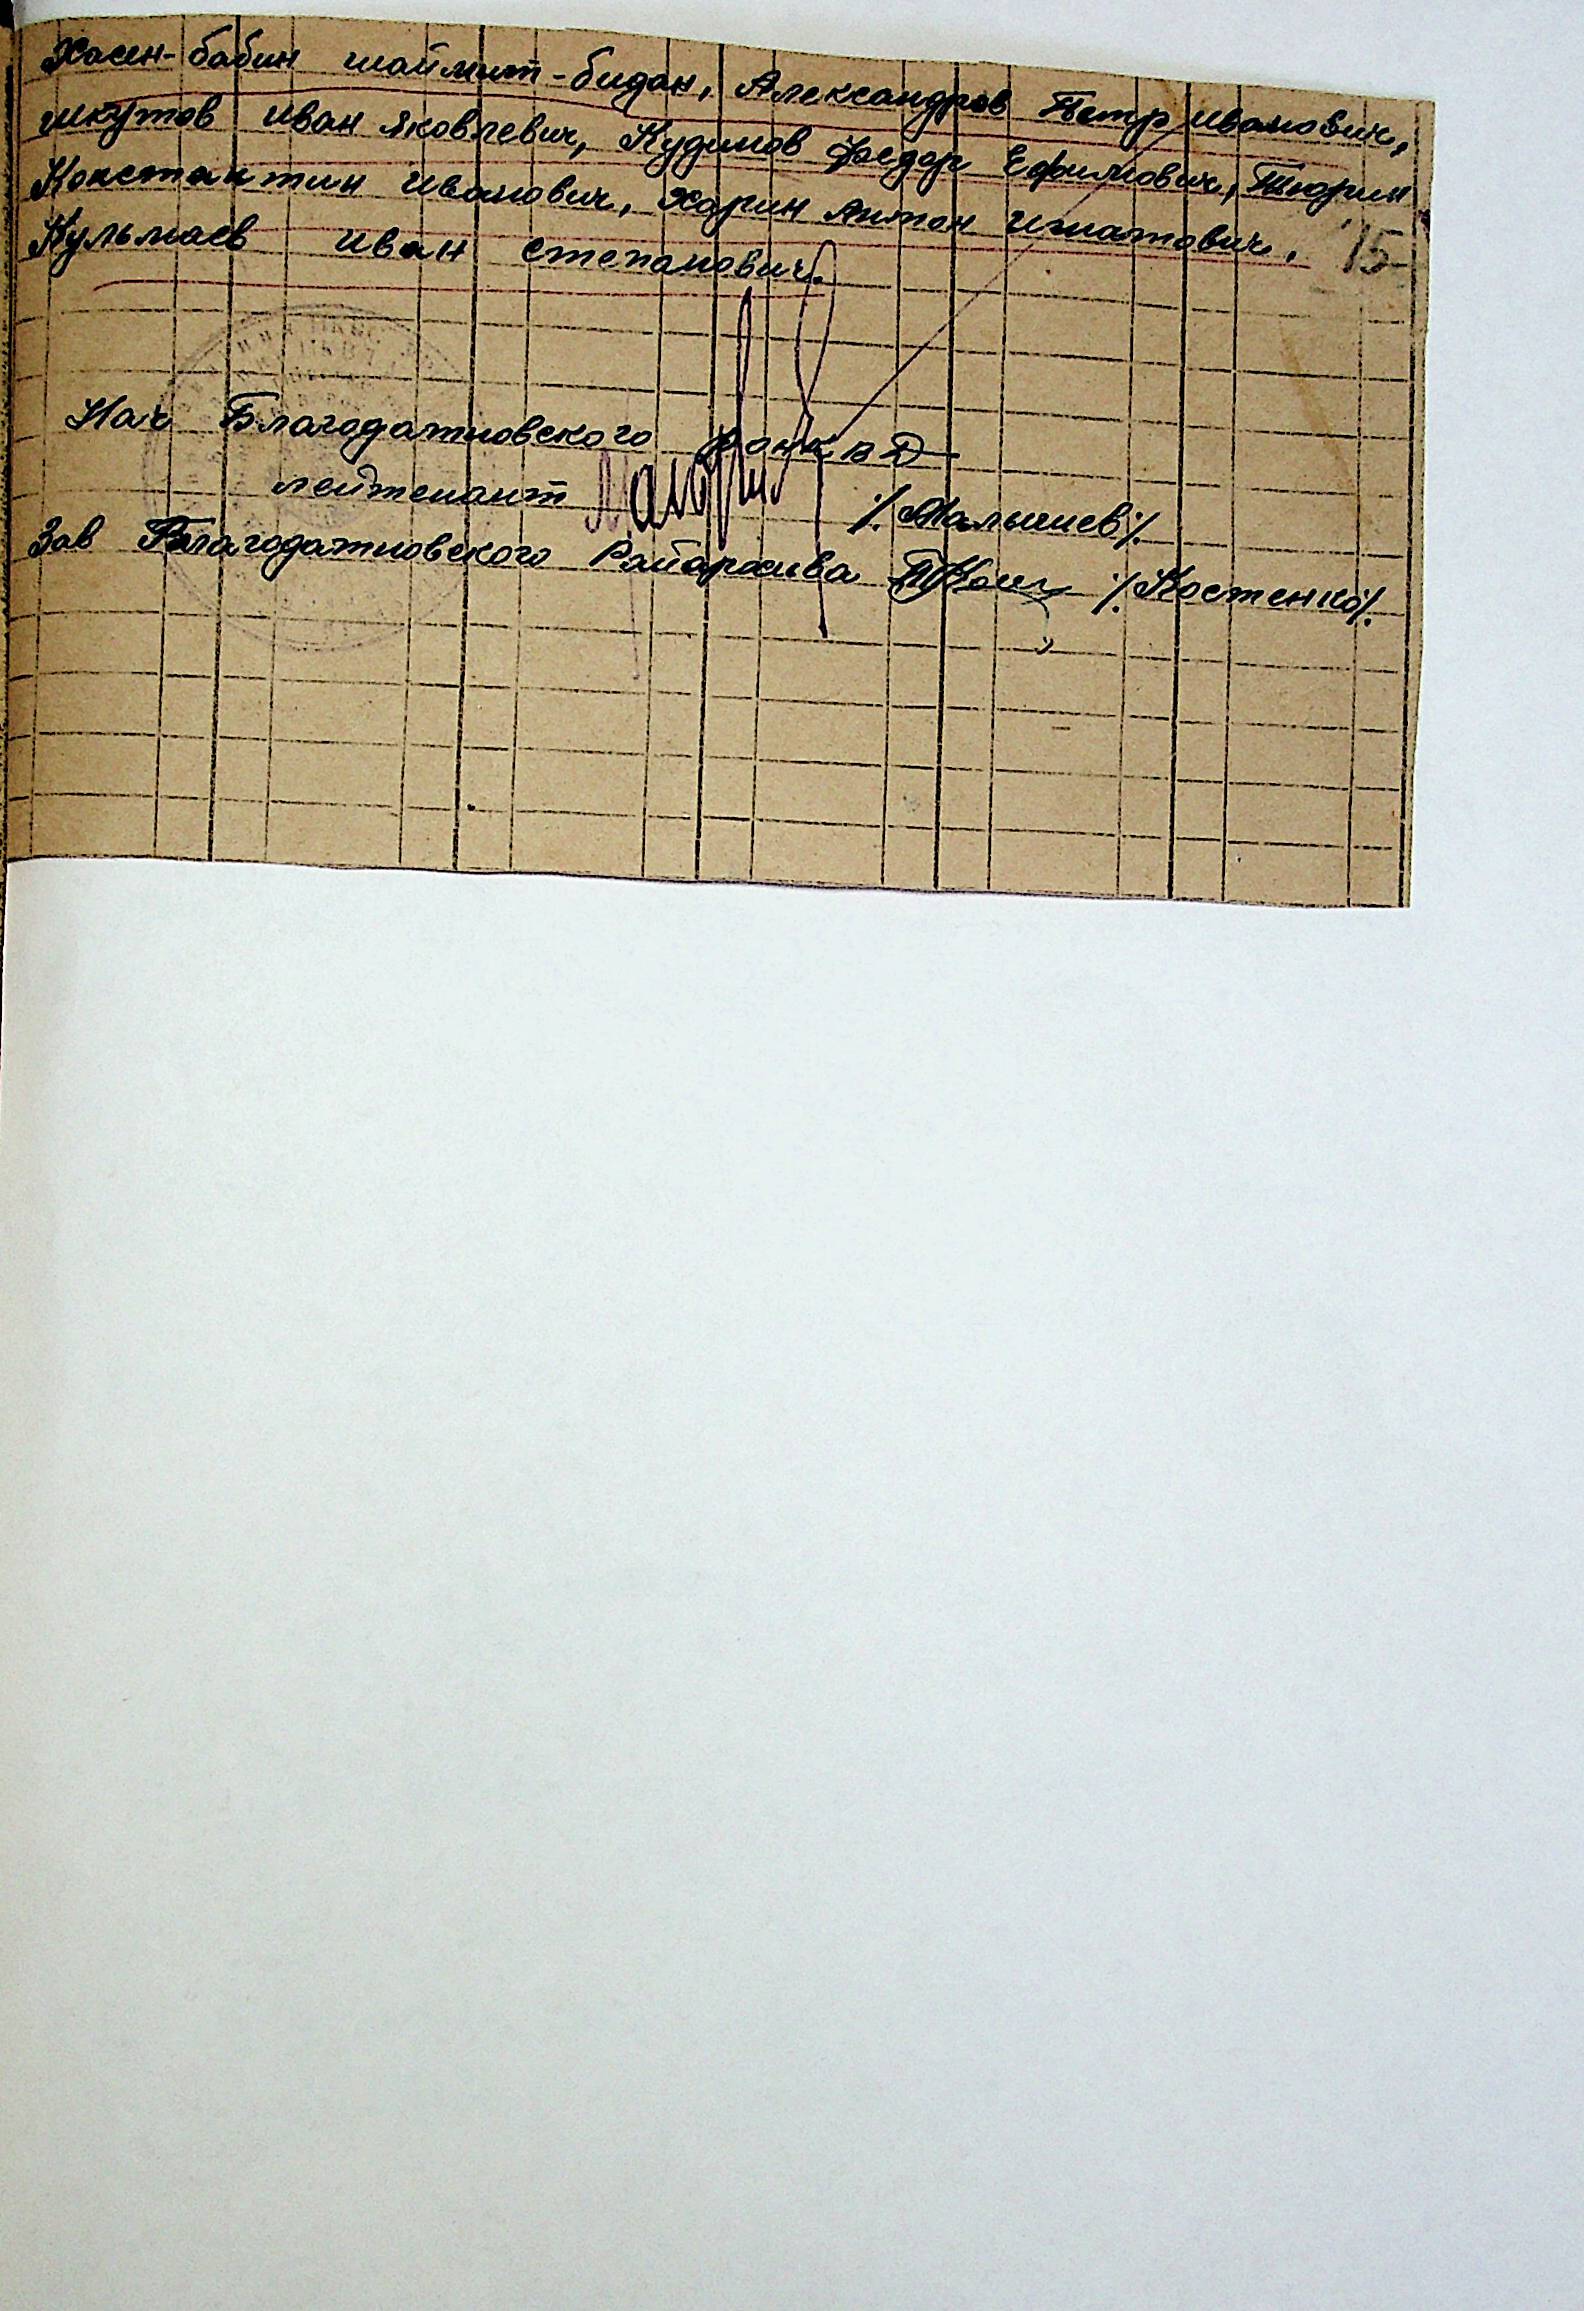 Хасен-бабин шаймит-бидан, Александров Петр Иванович,
Шкутов Иван Яковлевич, Кудинов Федор Ефимович, Тюрин
Константин Иванович, Харин Антон Игнатович,
15
Кульмаев Иван Степанович.
Нач Благодатновского РОНКВД
лейтенант /Малышев/.
Зав Благодатновского Райархива /Костенко/.